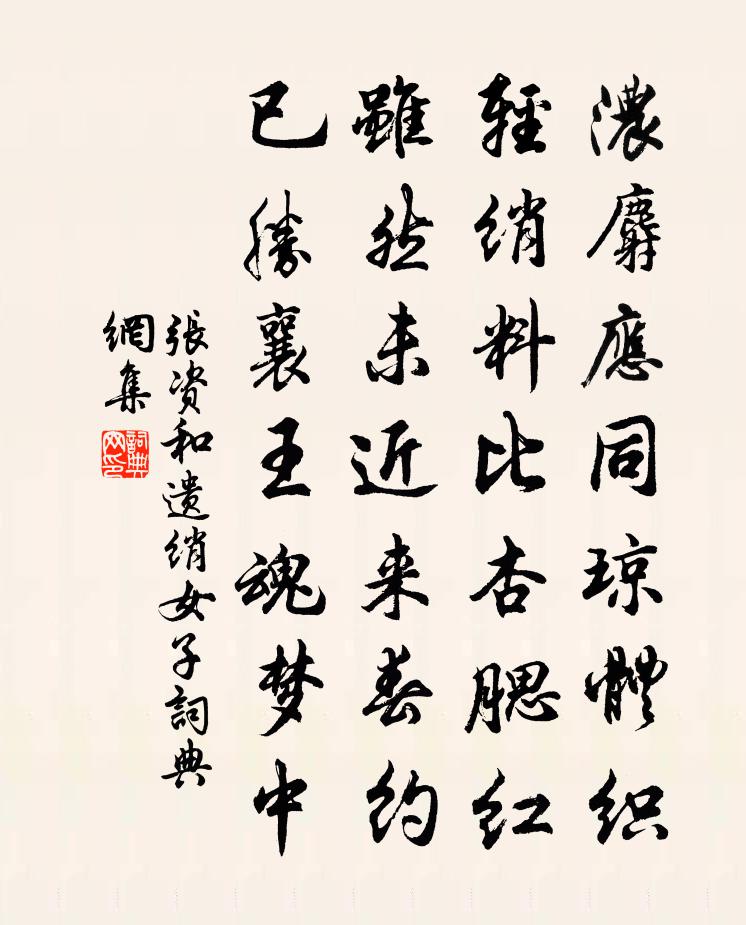 濃麝應同琼體织
輕绡料比杏腮红
雖然未近来春约
已勝襄王魂梦中
張资和遗绡女子詞典
網集
詞典
网印